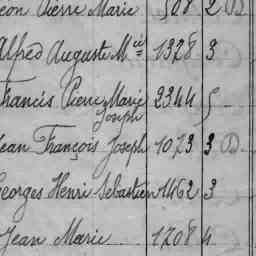 éon Pierre Marie 508 2 D
Alfred Auguste Mie 1378 3
Francis Pierre Marie Joseph 2344 5
Jean François Joseph 1073 3 D
Georges Henri Sébastien 1462 3
Jean Marie 1708 4